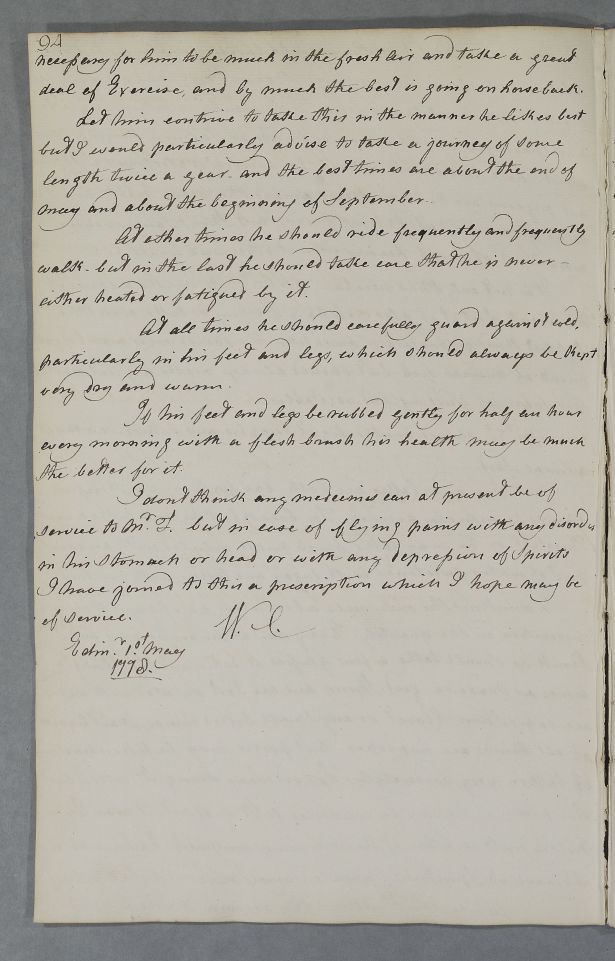 94
necessary for him to be much in the fresh air and take a great
deal of Exercise, and by much the best is going on horseback.
Let him contrive to take this in the manner he likes best
but I would particularly advise to take a journey of some
length twice a year. and the best times are about the end of
may and about the beginning of September.
At other times he should ride frequently and frequently
walk - but in the last he should take care that he is never
either heated or fatigued by it.
At all times he should carefully guard against cold,
particularly in his feet and legs, which should always be kept
very dry and warm.
If his feet and legs be rubbed gently for half an hour
every morning with a flesh brush his health may be much
the better for it.
I dont think any medecines can at present be of
service to Mr. F. but in case of flying pains with any disorder
in his stomach or head or with any depression of Spirits
I have joined to this a prescription which I hope may be
of service.
W. C.
Edinr. 1st. May
1778.